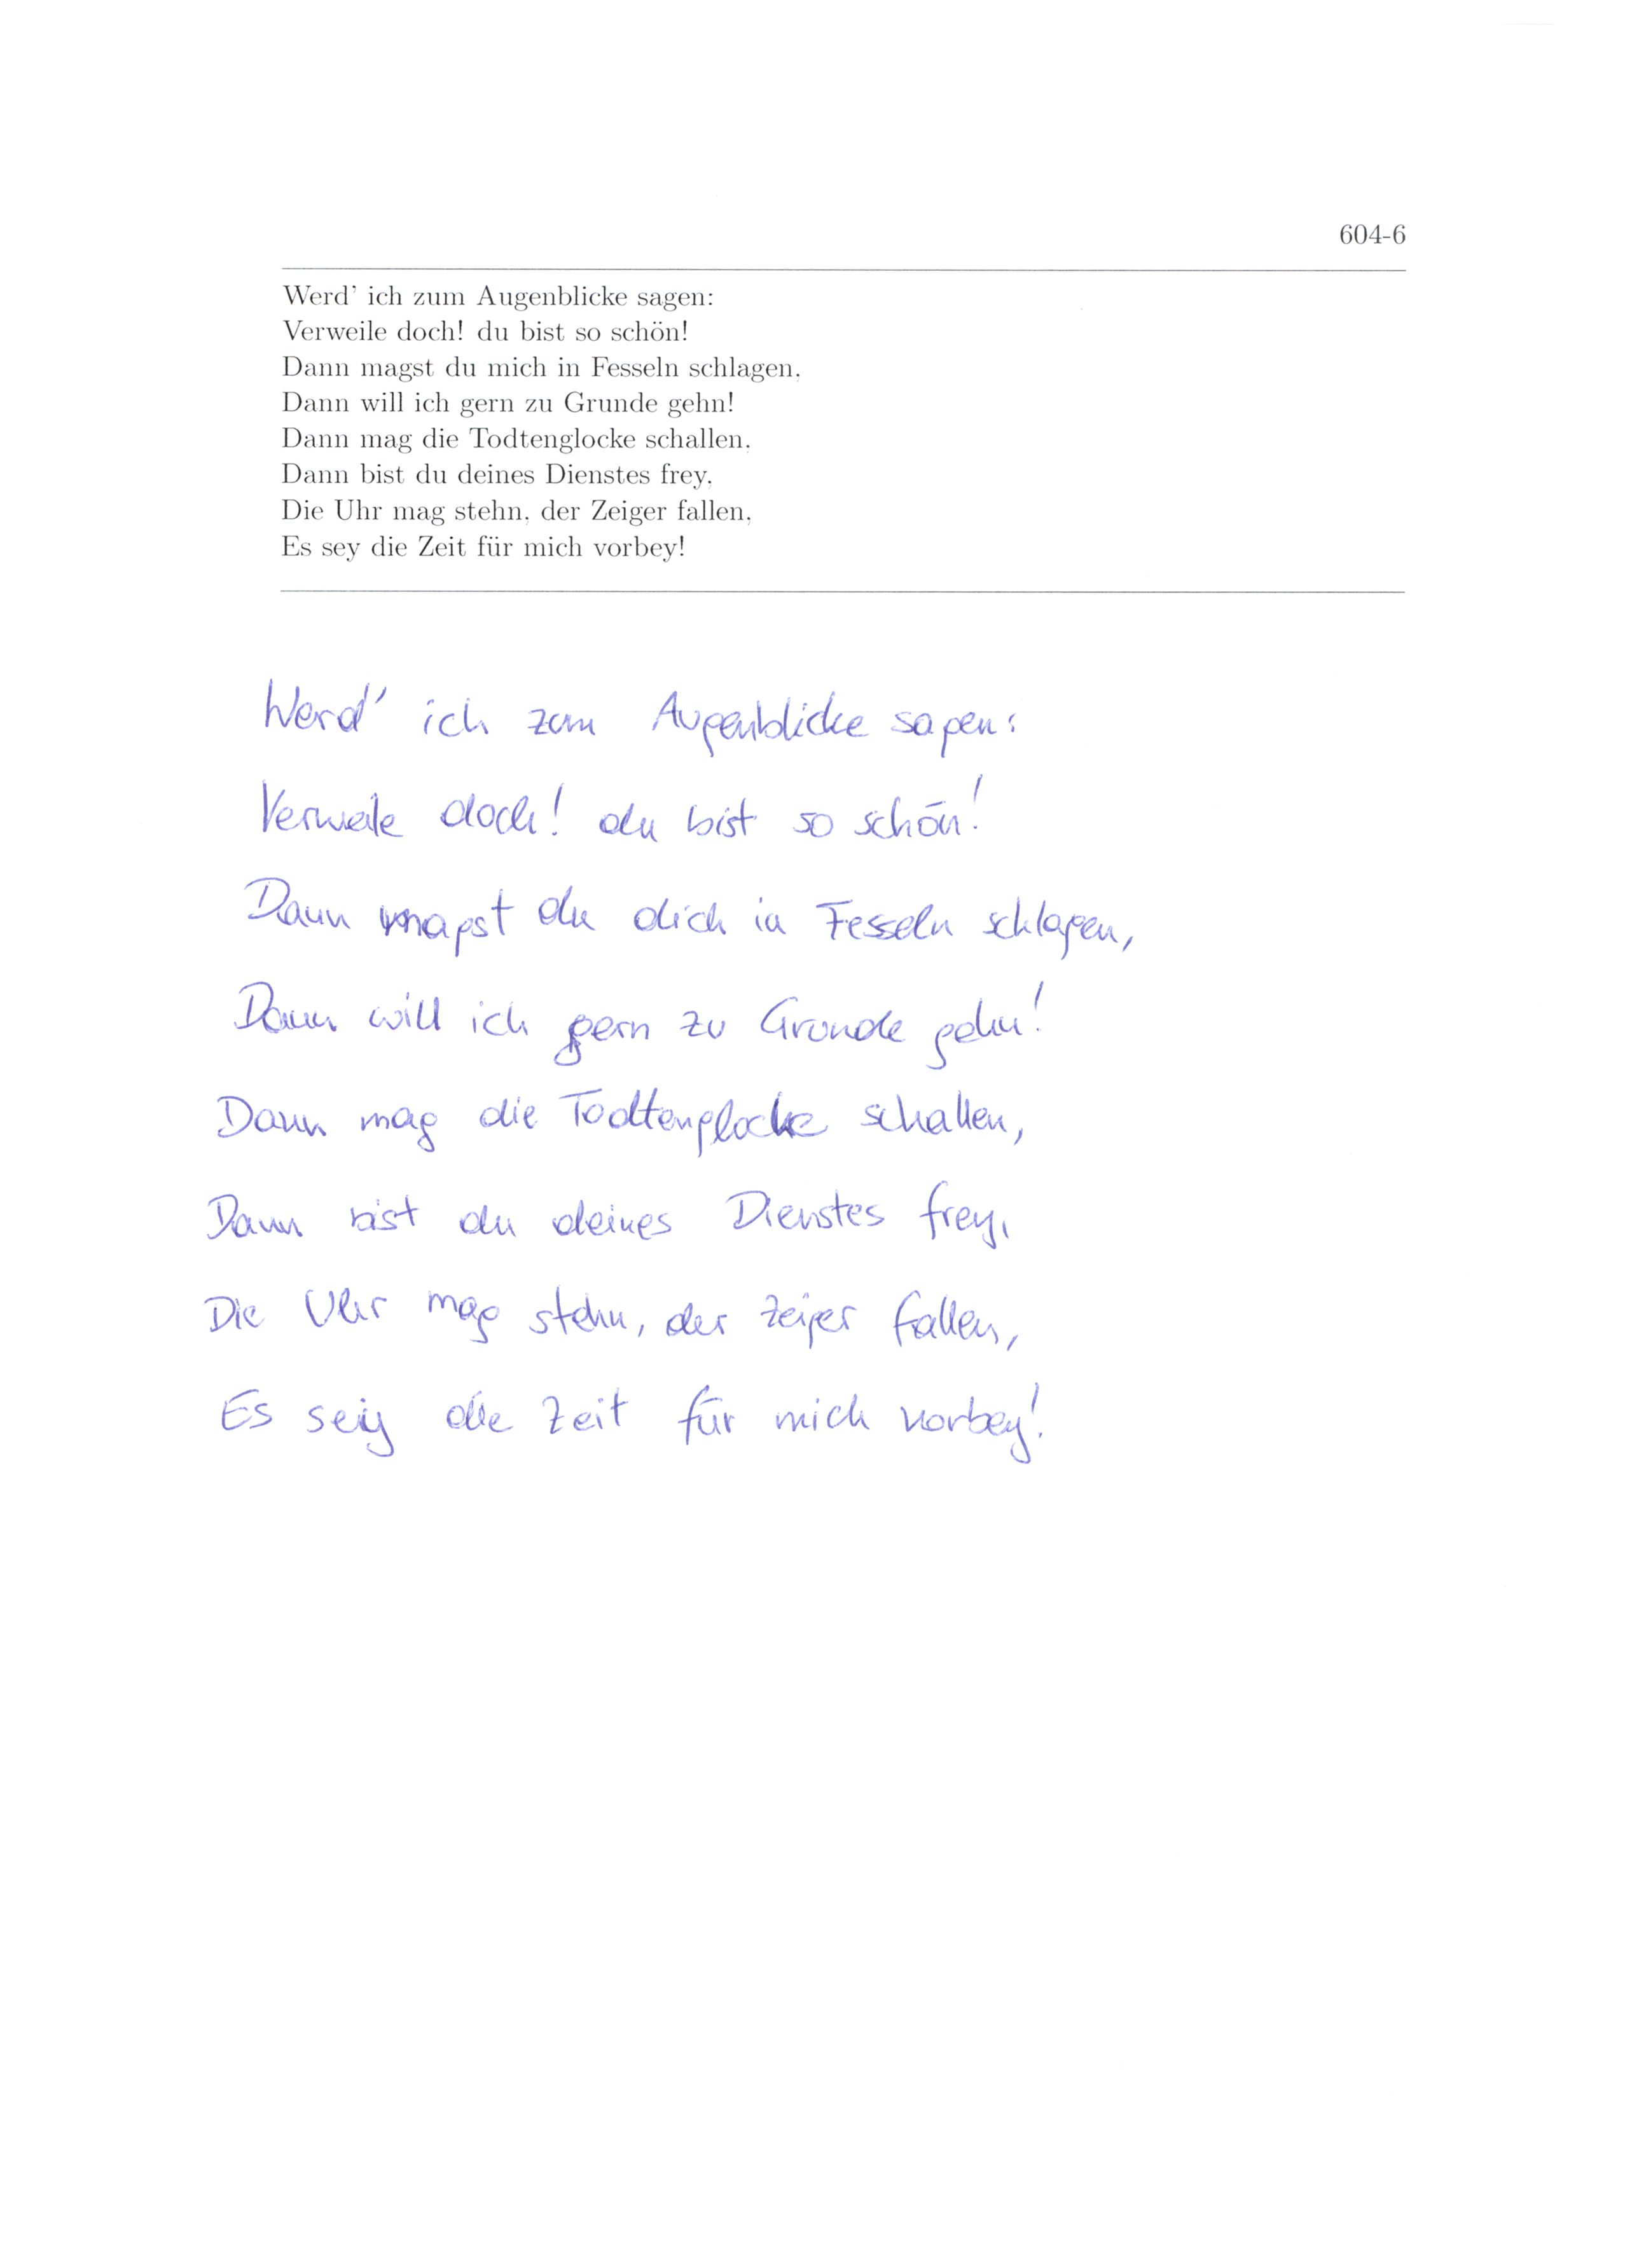 604-6
Werd' ich zum Augenblicke sagen:
Verweile doch! du bist so schön!
Dann magst du mich in Fesseln schlagen,
Dann will ich gern zu Grunde gehn!
Dann mag die Todtenglocke schallen,
Dann bist du deines Dienstes frey,
Die Uhr mag stehn, der Zeiger fallen,
Es sey die Zeit für mich vorbey!
Werd' ich zum Augenblicke sagen:
Verweile doch! du bist so schön!
Dann magst du dich in Fesseln schlagen,
Dann will ich gern zu Grunde gehn!
Dann mag die Todtenglocke schallen,
Dann bist du deines Dienstes frey,
Die Uhr mag stehn, der Zeiger fallen,
Es sey die Zeit für mich vorbey!